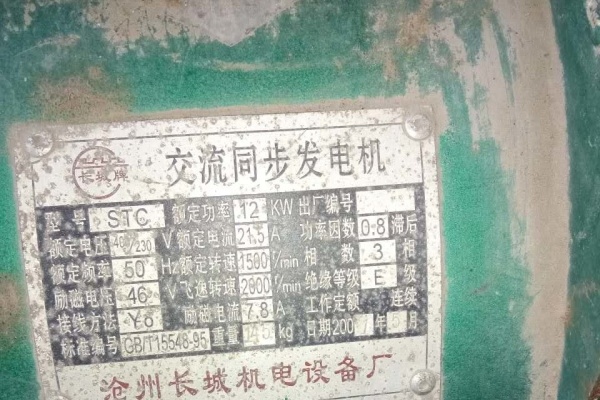 长城牌
交流同步发电机
型号 STC 额定功率 12 KW 出厂编号
额定电压 400/230 V 额定电流 21.5 A 功率因数 0.8 滞后
额定频率 50 Hz 额定转速 1500 r/min 相数 3 相
励磁电压 46 V 飞逸转速 r/min 绝缘等级 E 级
接线方法 Y0 励磁电流 7.8 A 工作定额 连续
标准编号 GB/T15548-95 重量 kg 日期 200 年 月
沧州长城机电设备厂